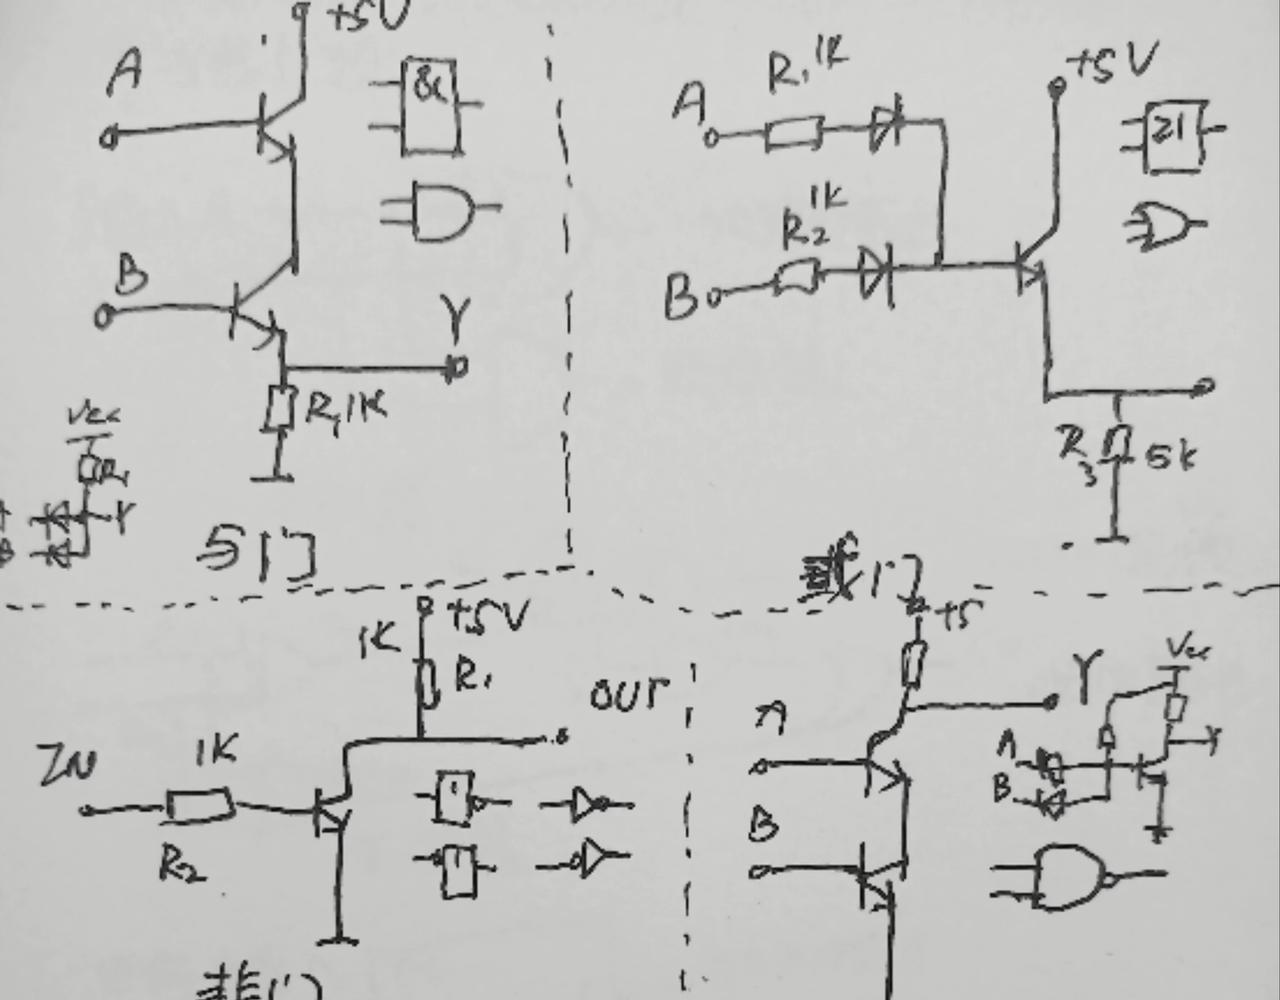 +5V
A
&
B
Y
R1 1K
Vcc
R1
Y
B
与门
A
R1 1K
+5V
≥1
R2 1K
B
R3 5K
或门
+5V
1K
R1
OUT
IN
1K
R2
1
1
非门
+5
A
Y
B
Vcc
A
B
Y